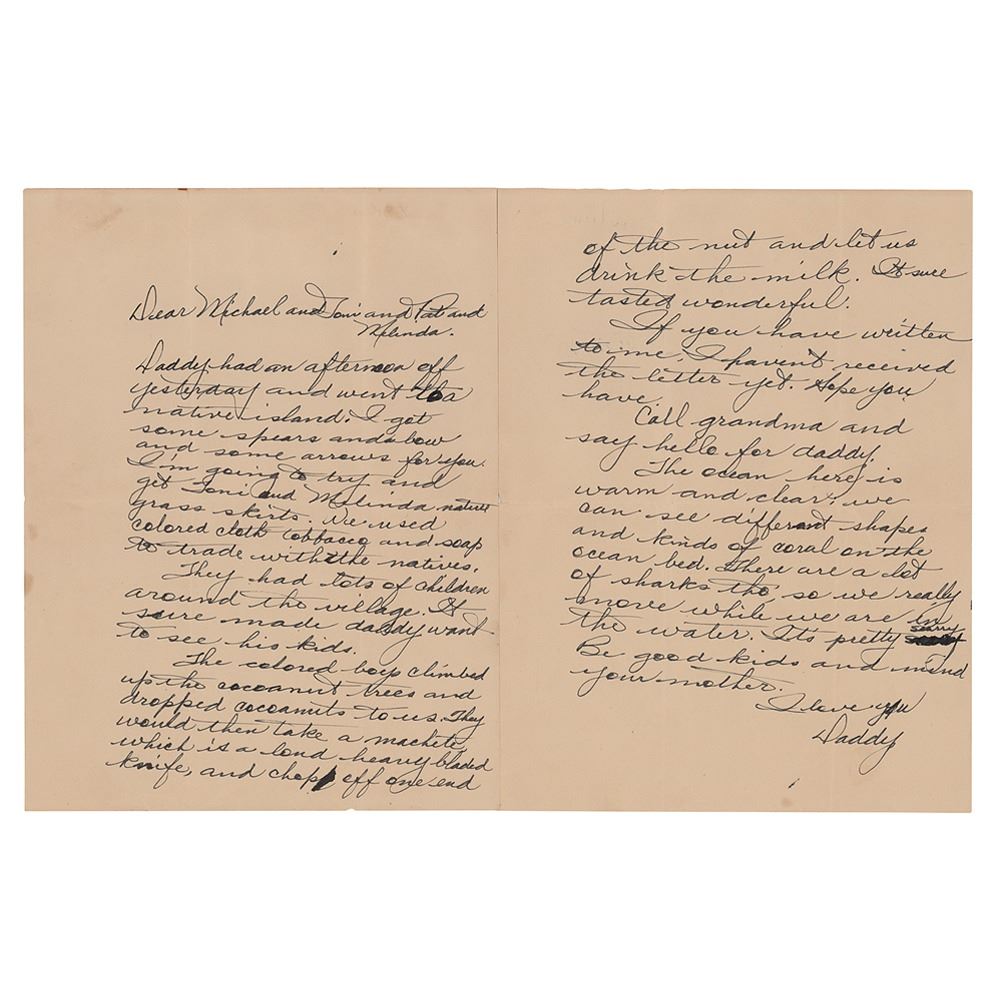 Dear Michael and Toni and Pat and
Melinda.
Daddy had an afternoon off
yesterday and went to a
native island. I got
some spears and a bow
and some arrows for you.
I'm going to try and
get Toni and Melinda native
grass skirts. We used
colored cloth tobbacco and soap
to trade with the natives.
They had lots of children
around the village. It
sure made daddy want
to see his kids.
The colored boys climbed
up the cocoanut trees and
dropped cocoanuts to us. They
would then take a machete,
which is a lond heavy bladed
knife, and chop off one end
of the nut and let us
drink the milk. It sure
tasted wonderful.
If you have written
to me, I haven't received
the letter yet. Hope you
have.
Call grandma and
say hello for daddy.
The ocean here is
warm and clear; we
can see different shapes
and kinds of coral on the
ocean bed. There are a lot
of sharks tho, so we really
move while we are in
the water. Its pretty scarry
Be good kids and mind
your mother.
I love you
Daddy